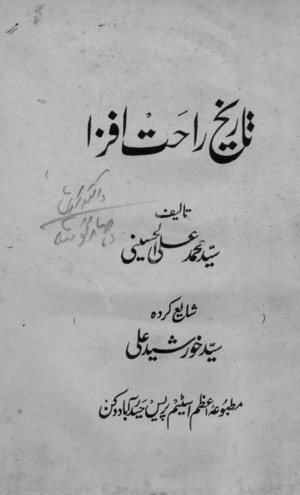 تاریخ راحت افزا
تالیف
سیّد محمد علی الحسینی
شایع کرده
سیّد خورشید علی
مطبوعہ اعظم اسٹیم پریس حیدرآباد دکن